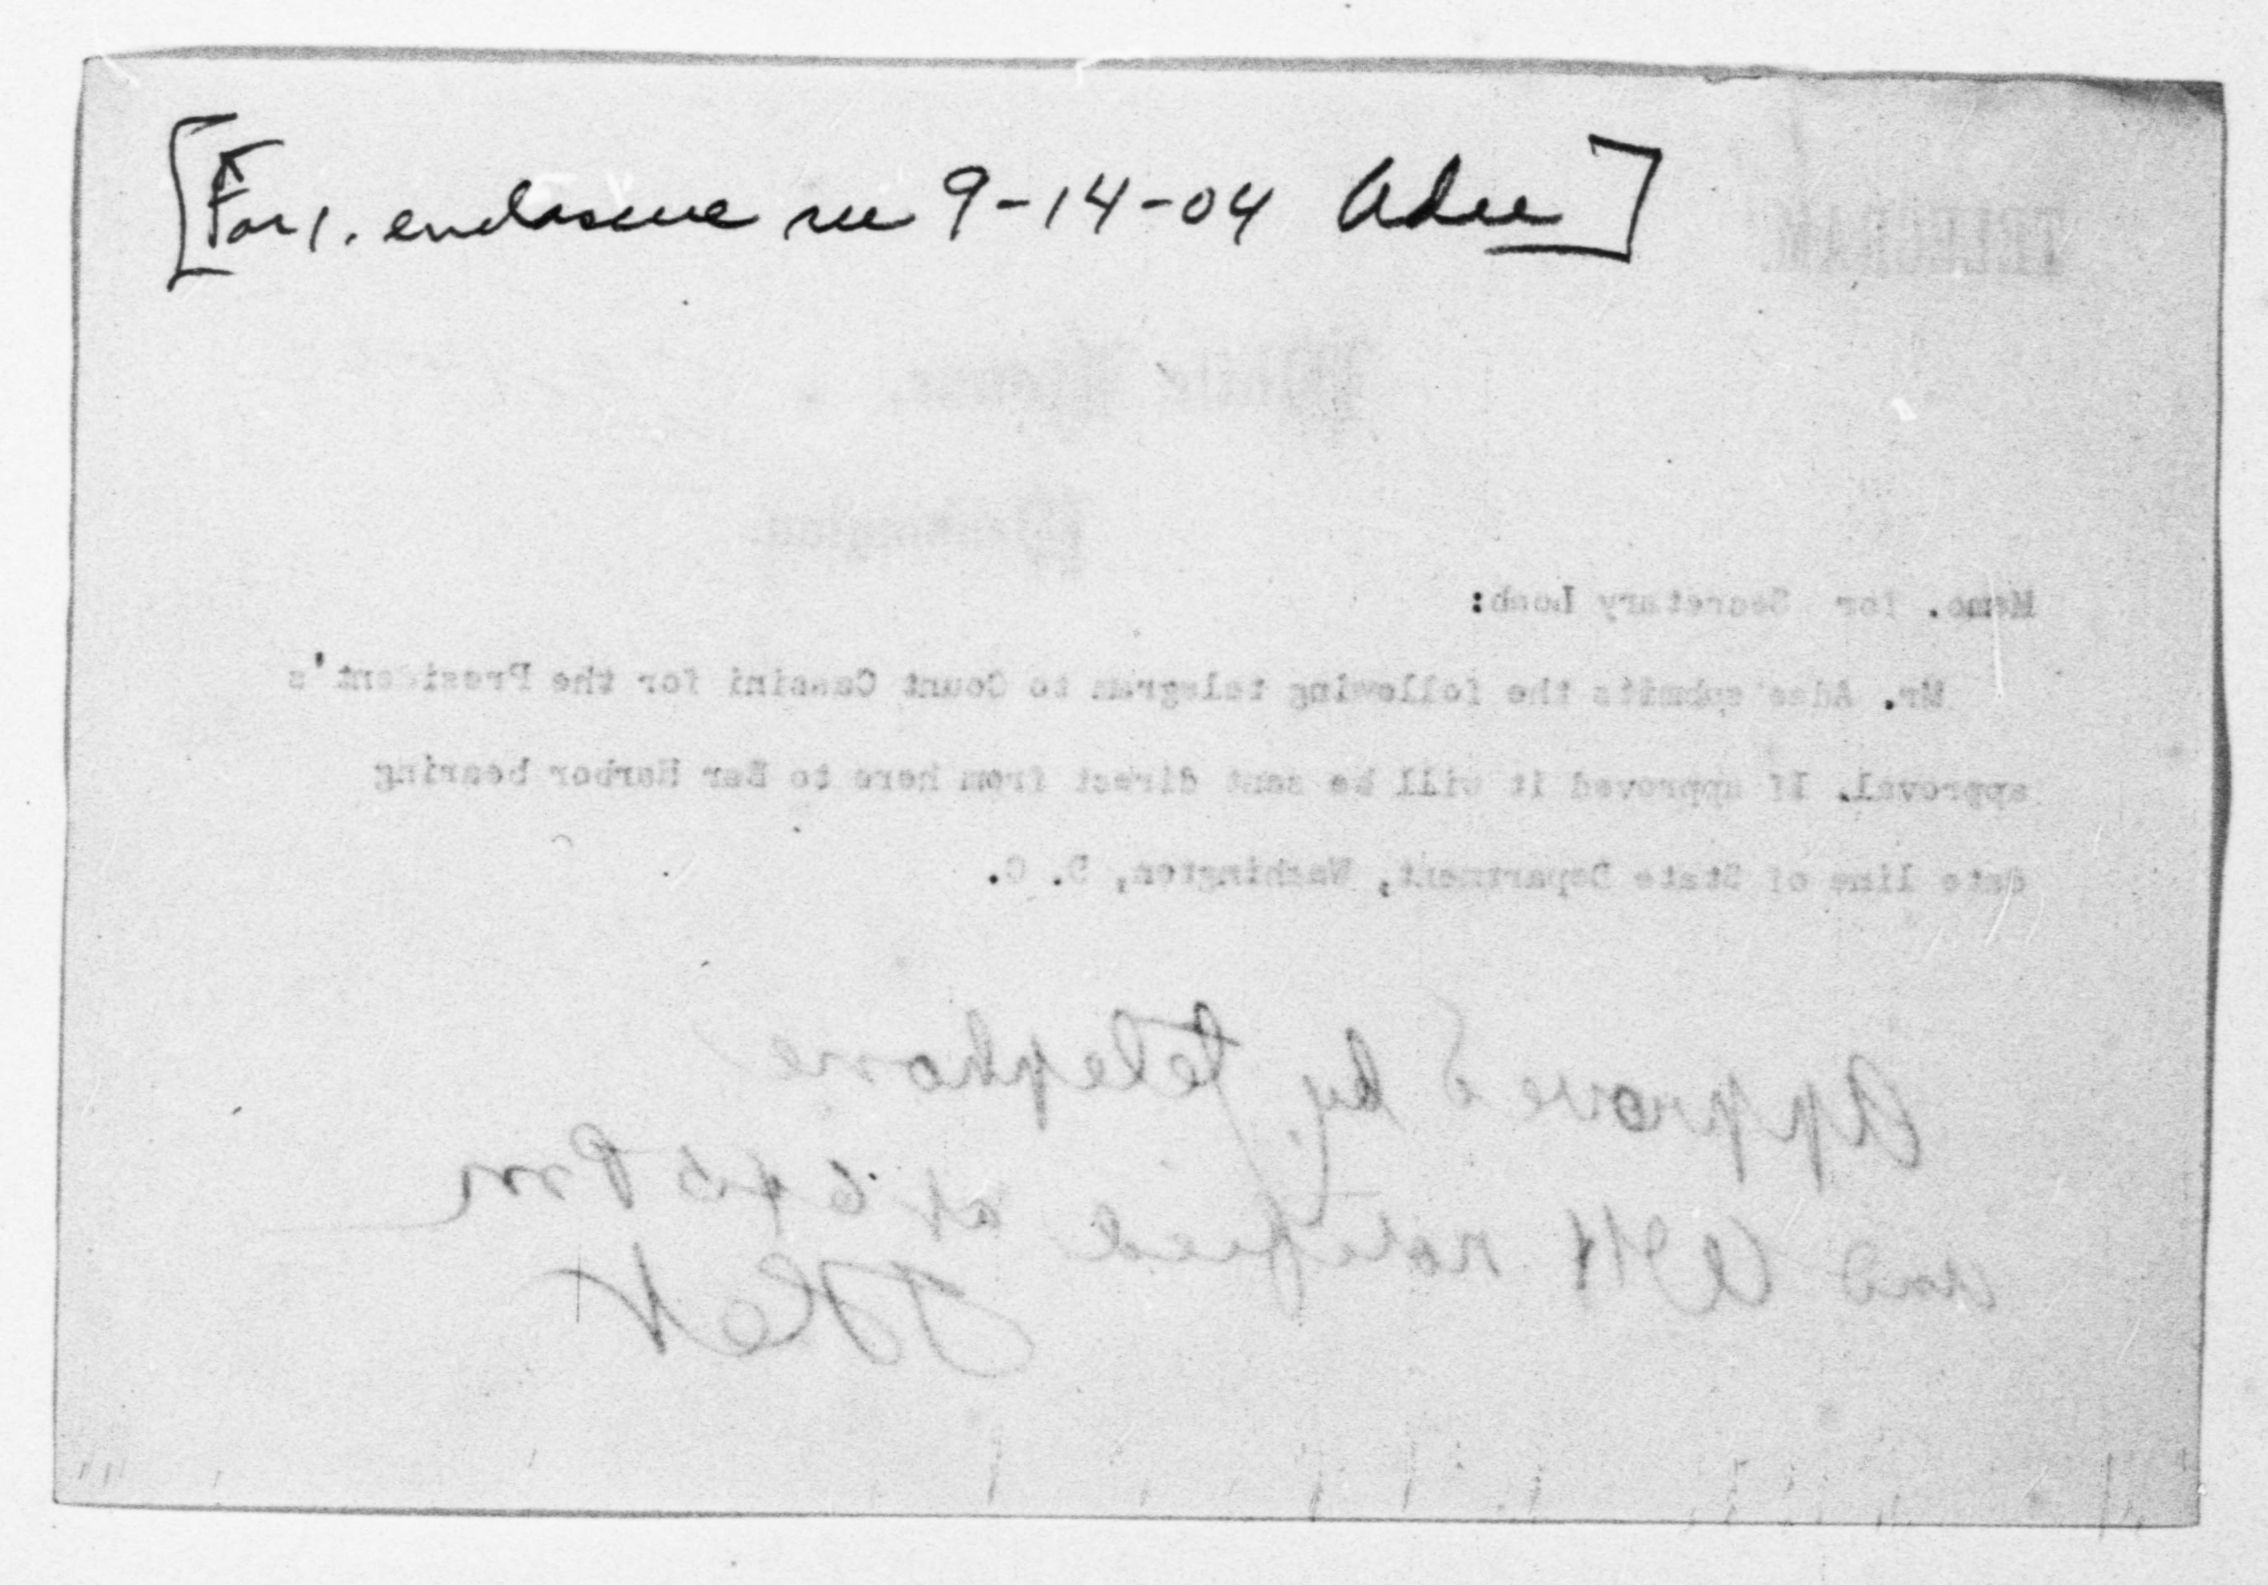 [For 1. enclosure see 9-14-04 Adee]
TELEGRAM.
White House.
Washington.
Memo. for Secretary Loeb:
Mr. Adee submits the following telegram to Count Cassini for the President's
approval. If approved it will be sent direct from here to Bar Harbor bearing
date line of State Department, Washington, D. C.
Approved by telephone
and notified at 6 45 Pm